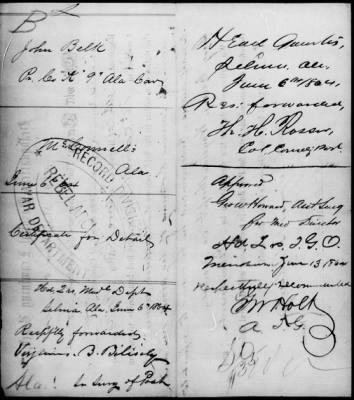 B
John Belk
Pr. Co. K 9" Ala Cav
McConnell's
Ala
June 6 /64
Certificate for Detail
Hd. Qrs. Med. Dept
Selma Ala. June 6th 1864
Respfly forwarded
B.
Ala. Surg of Post
RECORD DIVISION
WAR DEPARTMENT
Head Quarters,
Selma, Ala.
June 6th 1864.
Res: forwarded,
Th. H. Rosser,
Col. Comdg Post.
Approved
Geo W Howard, Asst Surg
for Med Director
Hd. Qrs. I. G. O.
Meridian June 13 1864
Respectfully Recommended
Holt
A I G